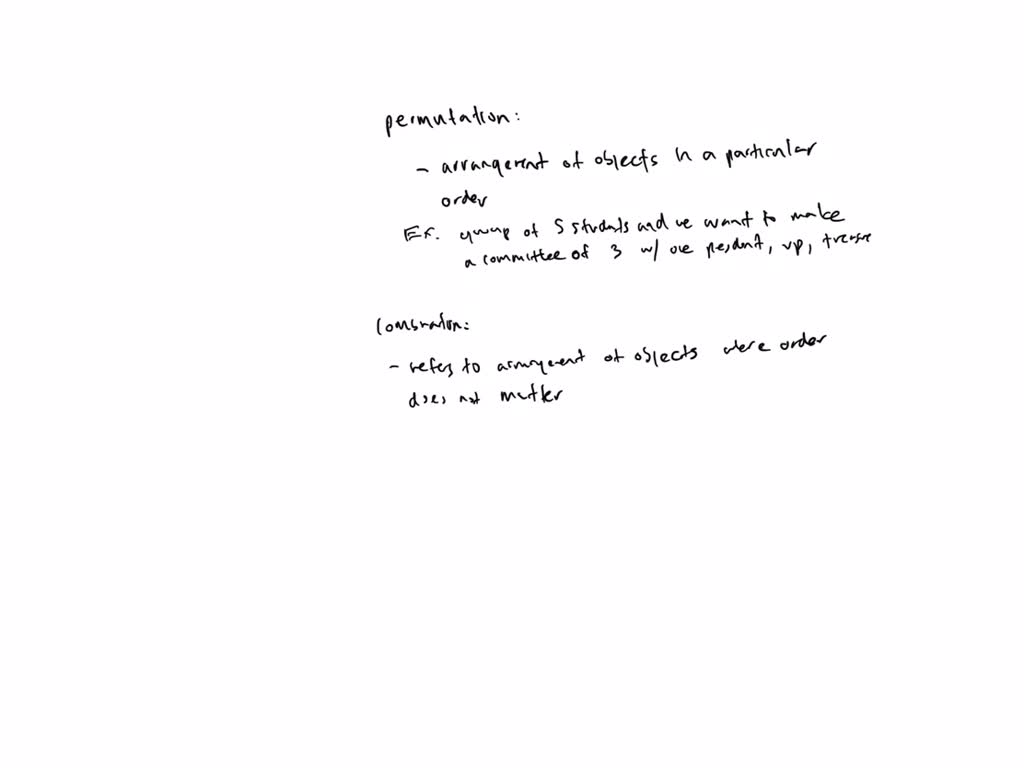 permutation:
- arrangement of objects in a particular
order
Ex. group of 5 students and we want to make
a committee of 3 w/ one president, vp, treasure
Combination:
- refers to arrangement of objects where order
does not matter